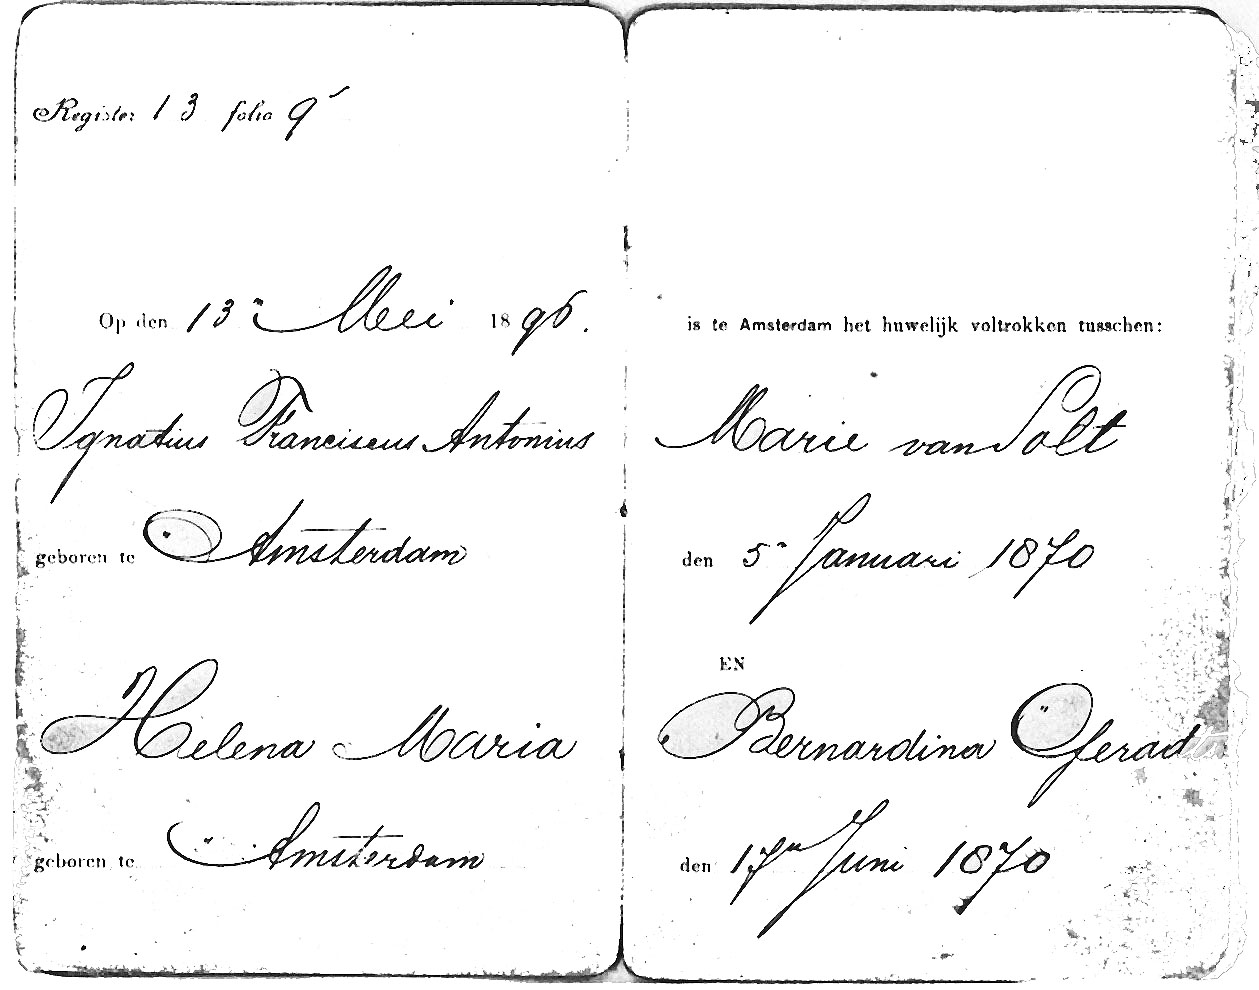 Register 13 folio 9
Op den 13n Mei 1896. is te Amsterdam het huwelijk voltrokken tusschen:
Ignatius Franciscus Antonius Marie van Solt
geboren te Amsterdam den 5n Januari 1870
EN
Helena Maria Bernardina Gerad
geboren te Amsterdam den 17en Juni 1870